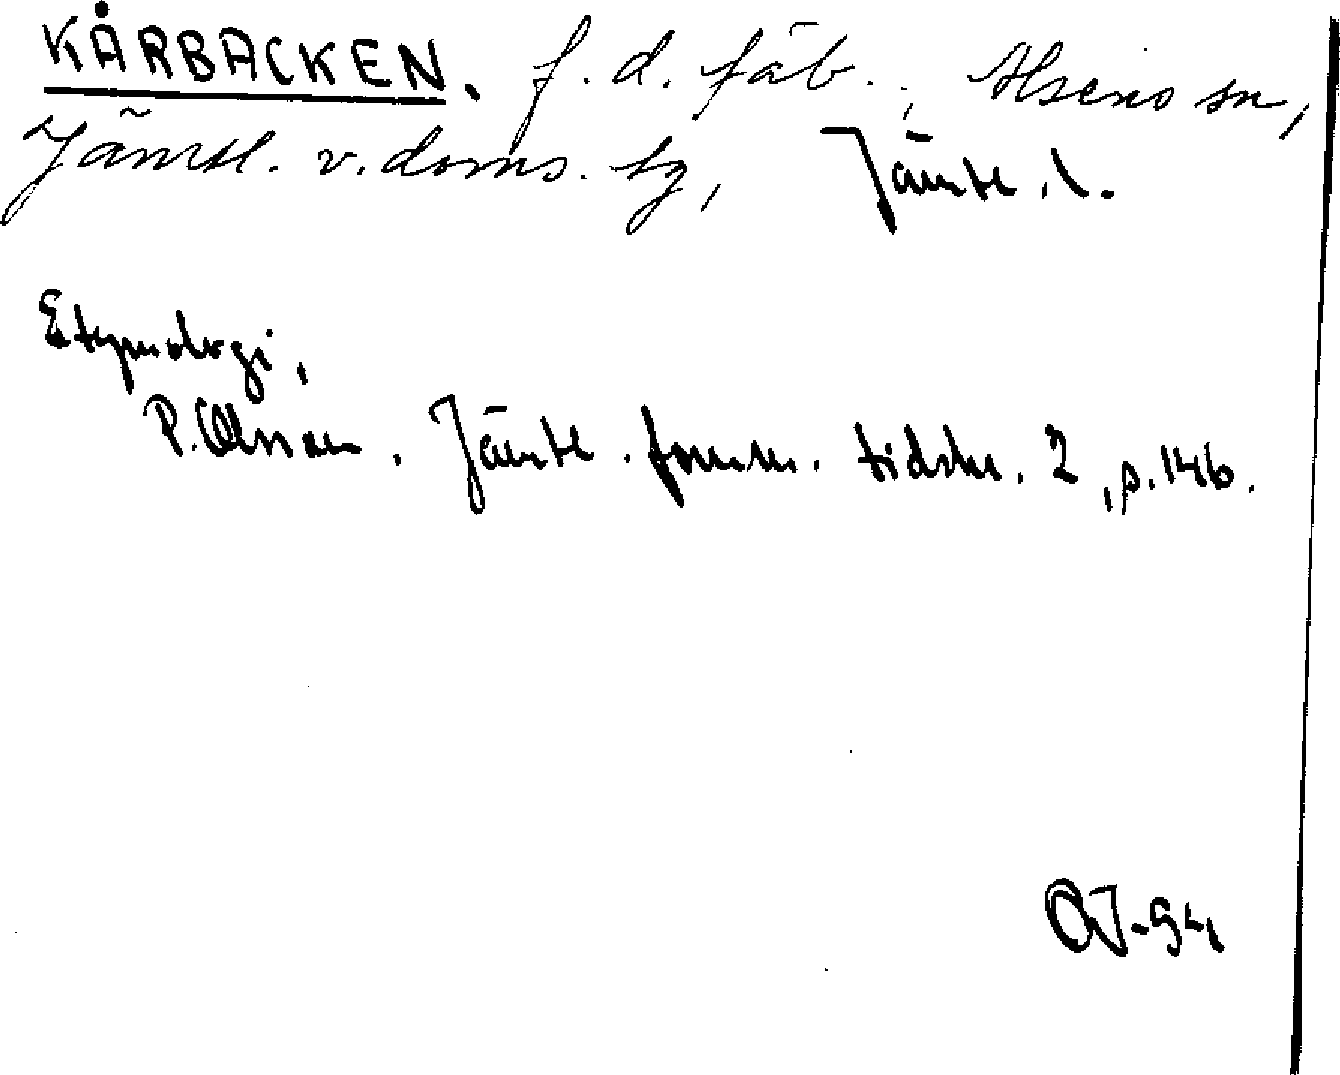 KÅRBACKEN. f.d. fäb., Alsens sn,
Jämtl. v. doms. tg, Jämtl. l.
Etymologi,
P. Olsson. Jämtl. fornm. tidskr. 2, s. 146.
OJ-94